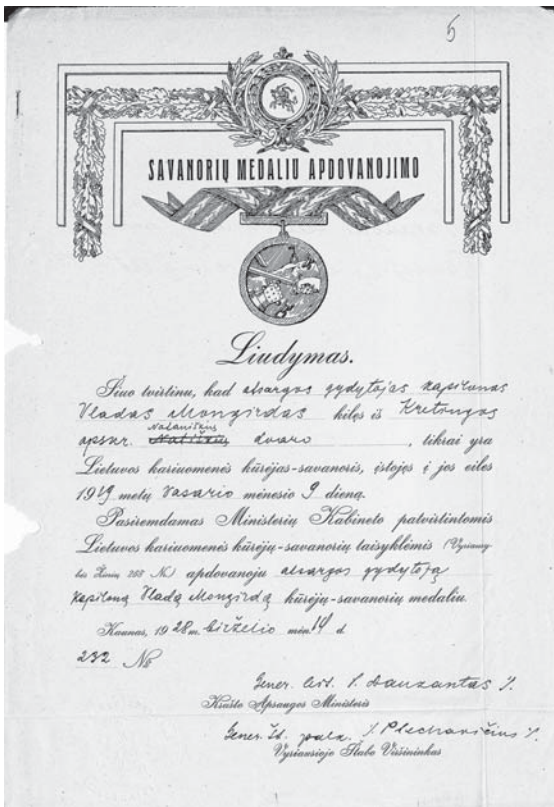 5
SAVANORIŲ MEDALIU APDOVANOJIMO
Liudymas.
Šiuo tvirtinu, kad atsargos gydytojas kapitonas
Vladas Mongirdas kilęs iš Kretingos
apskr. dvaro, tikrai yra
Lietuvos kariuomenės kūrėjas-savanoris, įstojęs į jos eiles
1919 metų Vasario mėnesio 9 dieną.
Pasiremdamas Ministerių Kabineto patvirtintomis
Lietuvos kariuomenės kūrėjų-savanorių taisyklėmis (Vyriausy-
bės Žinių 268 No) apdovanoju atsargos gydytoją
kapitoną Vladą Mongirdą kūrėjų-savanorių medaliu
Kaunas, 1928 m. birželio mėn. 14 d
232 No
Gener. Daukantas
Krašto Apsaugos Ministeris
Gener. Št. Plechavičius
Vyriausiojo Štabo Viršininkas